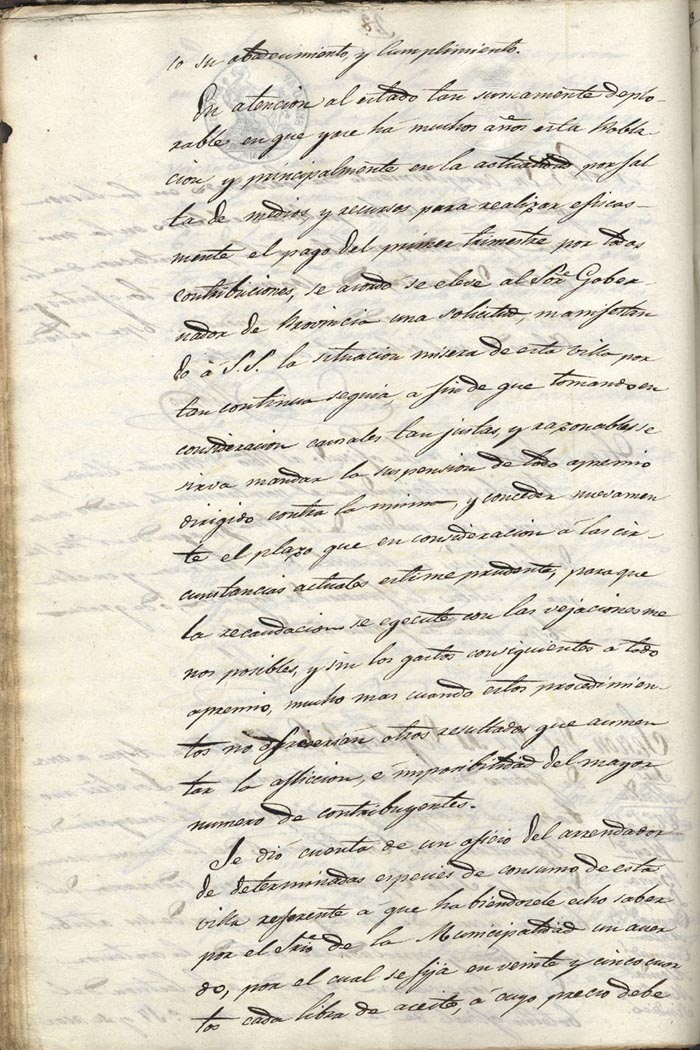 to su obedecimiento, y cumplimiento.
En atencion al estado tan sumamente deplo-
rable en que yace ha muchos años esta Pobla
cion, y principalmente en la actualidad por fal
ta de medios, y recursos para realizar eficas-
mente el pago del primer trimestre por todas
contribuciones, se acordó se eleve al Sor. Gober-
nador de Provincia una solicitud, manifestan
do á S.S. la situacion misera de esta villa por
tan continua seguia, a fin de que tomando en
consideracion causales tan justas, y razonables se
sirva mandar la suspension de todo apremio
dirigido contra la misma, y conceder nuevamen
te el plazo que en consideracion á las cir-
cunstancias actuales estime prudente, para que
la recaudacion se egecute con las vejaciones me
nos posibles, y sin los gastos consiguientes a todo
apremio, mucho mas cuando estos procedimien
tos no ofrecerian otros resultados que aumen
tar la afliccion, é imposibilidad del mayor
numero de contribuyentes.
Se dió cuenta de un oficio del arrendador
de determinadas especies de consumo de esta
villa referente á que habiendosele echo saber
por el Srio. de la Municipalidad un acuer
do, por el cual se fija en veinte y cinco cuar
tos cada libra de aceite, á cuyo precio debe